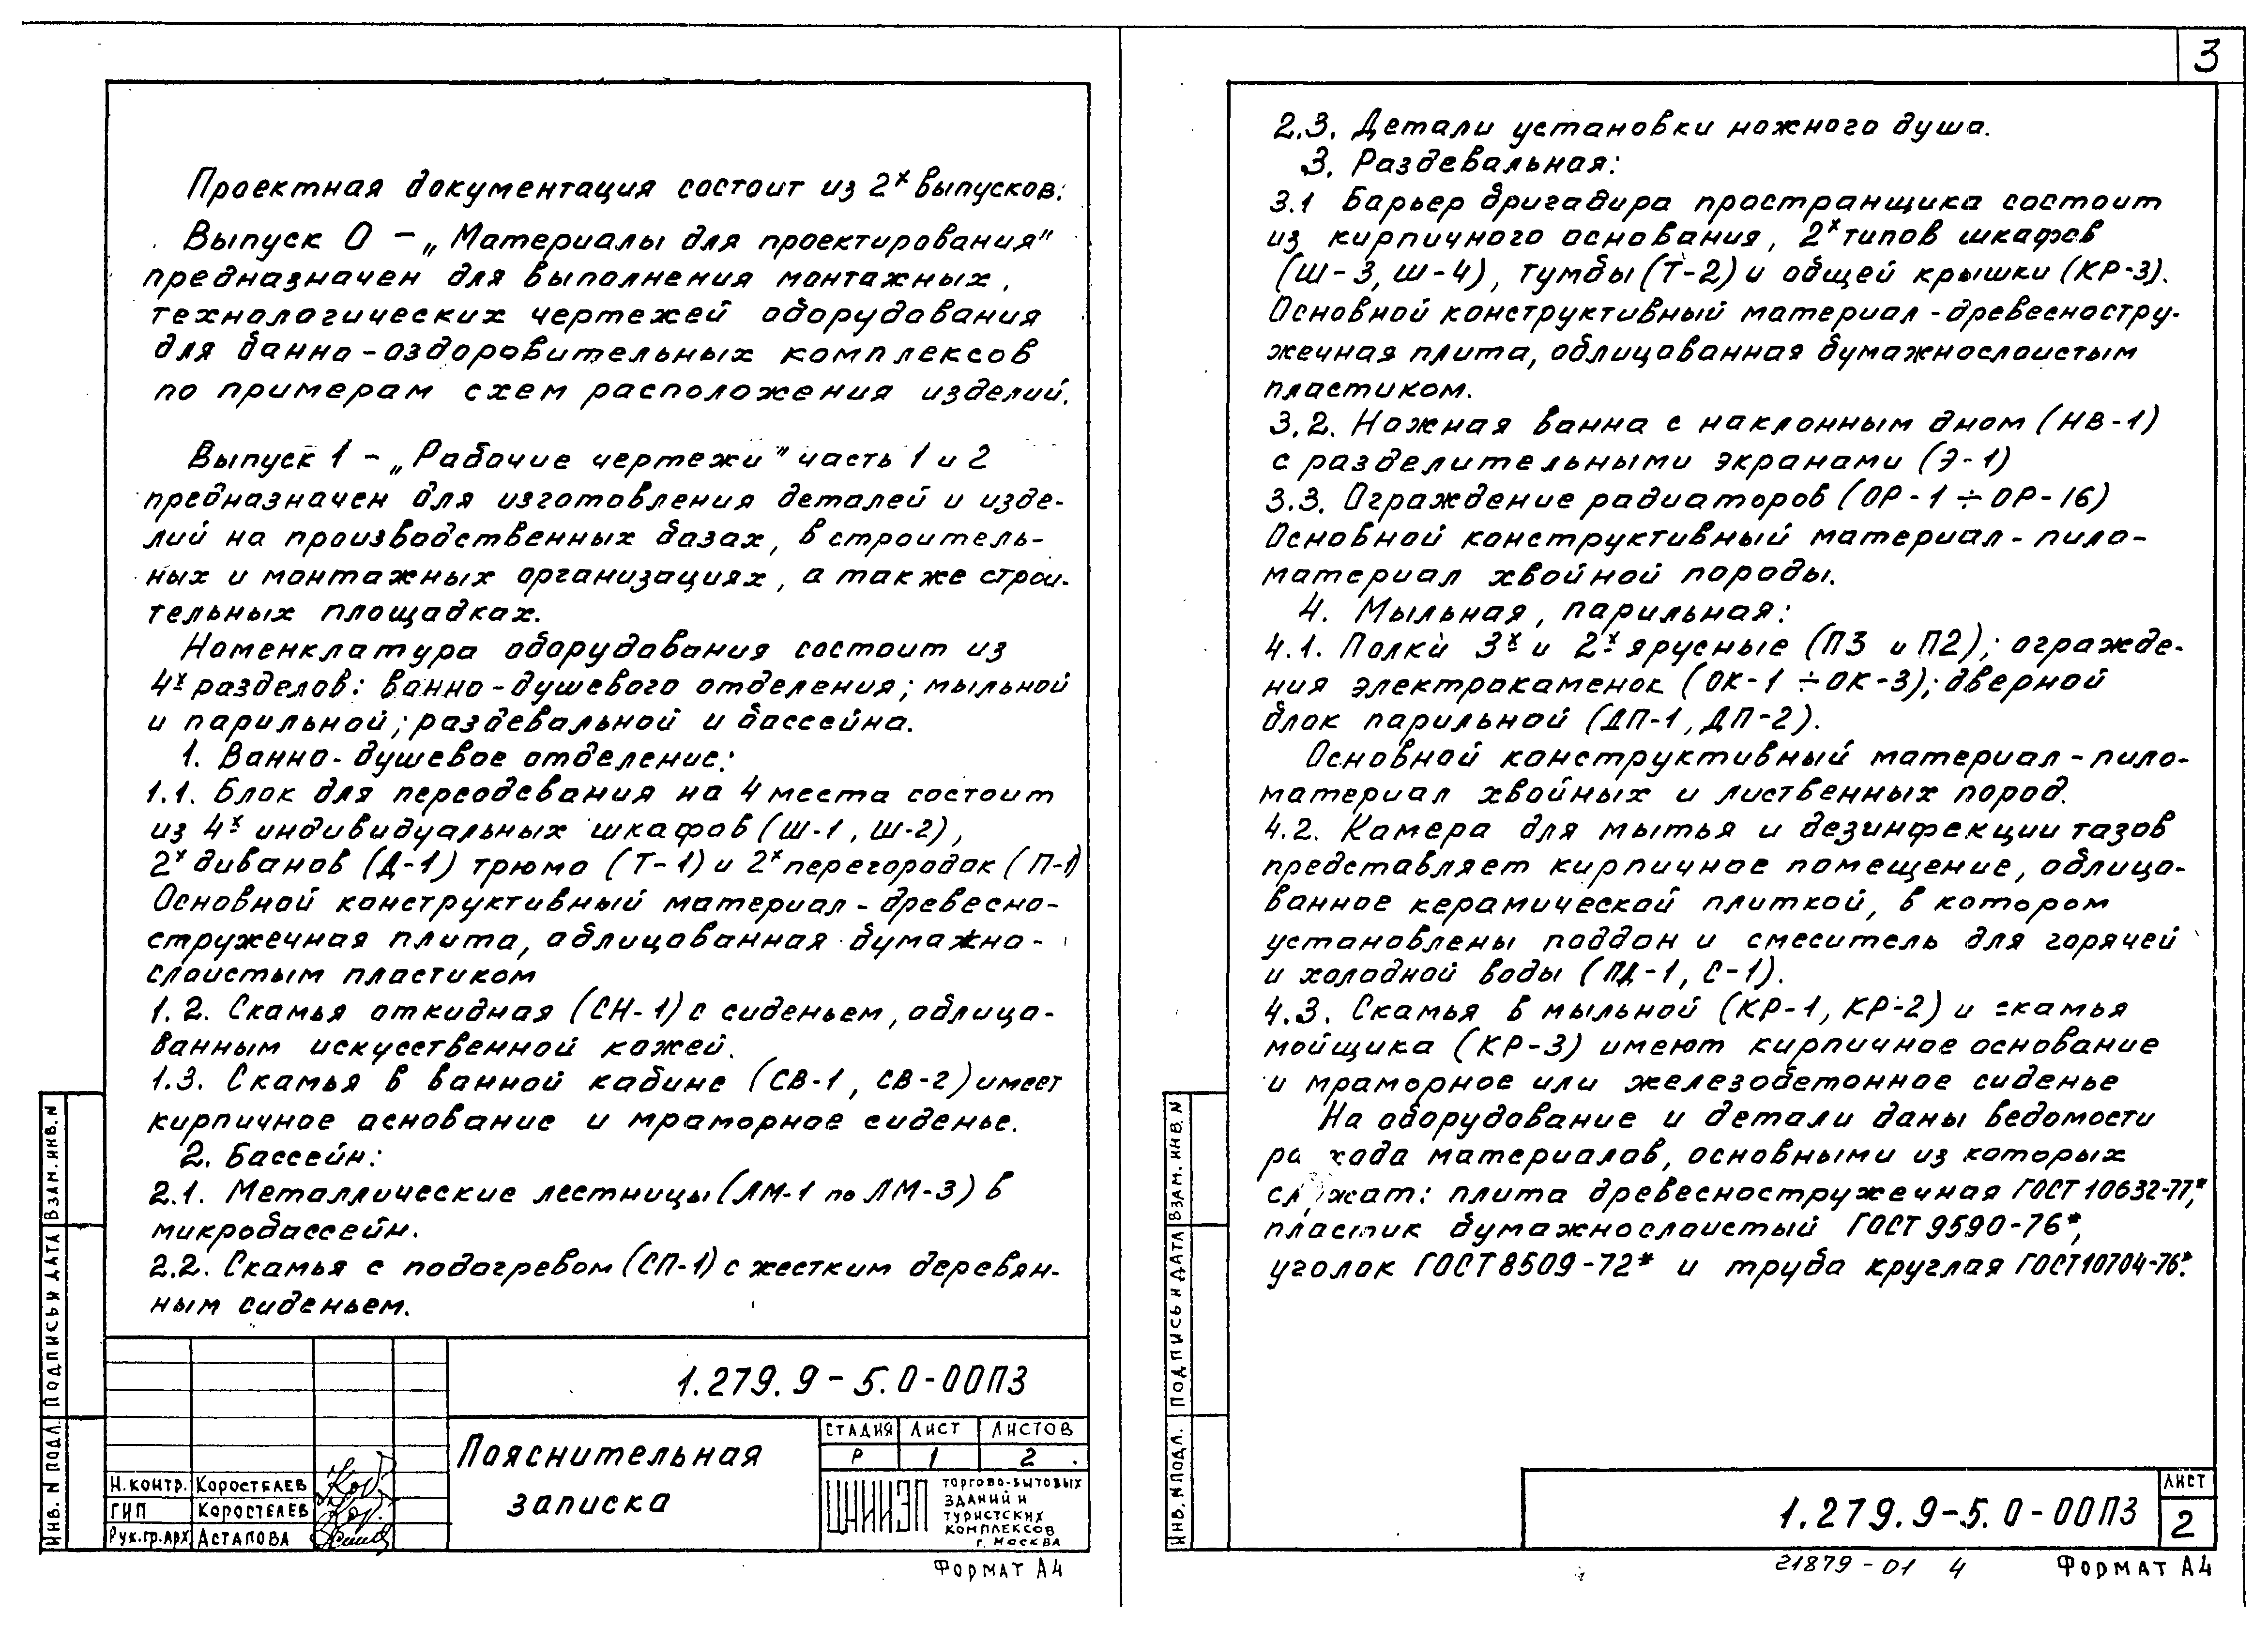 Проектная документация состоит из 2х выпусков:
Выпуск 0 – „Материалы для проектирования"
предназначен для выполнения монтажных,
технологических чертежей оборудования
для банно-оздоровительных комплексов
по примерам схем расположения изделий.
Выпуск 1 – „Рабочие чертежи" часть 1 и 2
предназначен для изготовления деталей и изде-
лий на производственных базах, в строитель-
ных и монтажных организациях, а также строи-
тельных площадках.
Номенклатура оборудования состоит из
4х разделов: ванно-душевого отделения; мыльной
и парильной; раздевальной и бассейна.
1. Ванно-душевое отделение:
1.1. Блок для переодевания на 4 места состоит
из 4х индивидуальных шкафов (Ш-1, Ш-2),
2х диванов (Д-1) трюмо (Т-1) и 2х перегородок (П-1)
Основной конструктивный материал – древесно-
стружечная плита, облицованная бумажно-
слоистым пластиком
1.2. Скамья откидная (СН-1) с сиденьем, облицо-
ванным искусственной кожей.
1.3. Скамья в ванной кабине (СВ-1, СВ-2) имеет
кирпичное основание и мраморное сиденье.
2. Бассейн:
2.1. Металлические лестницы (ЛМ-1 по ЛМ-3) в
микробассейн.
2.2. Скамья с подогревом (СП-1) с жестким деревян-
ным сиденьем.
1.279.9-5.0-00ПЗ
Пояснительная
записка
СТАДИЯ ЛИСТ ЛИСТОВ
Р 1 2
ЦНИИЭП
ТОРГОВО-БЫТОВЫХ
ЗДАНИЙ И
ТУРИСТСКИХ
КОМПЛЕКСОВ
Г. МОСКВА
Н.КОНТР. КОРОСТЕЛЕВ
ГИП КОРОСТЕЛЕВ
РУК.ГР.АРХ АСТАПОВА
ИНВ. N ПОДЛ. ПОДПИСЬ И ДАТА ВЗАМ. ИНВ. N
ФОРМАТ А4
3
2.3. Детали установки ножного душа.
3. Раздевальная:
3.1 Барьер бригадира пространщика состоит
из кирпичного основания, 2х типов шкафов
(Ш-3, Ш-4), тумбы (Т-2) и общей крышки (КР-3).
Основной конструктивный материал – древесностру-
жечная плита, облицованная бумажнослоистым
пластиком.
3.2. Ножная ванна с наклонным дном (НВ-1)
с разделительными экранами (Э-1)
3.3. Ограждение радиаторов (ОР-1 ÷ ОР-16)
Основной конструктивный материал – пило-
материал хвойной породы.
4. Мыльная, парильная:
4.1. Полки 3х и 2х ярусные (П3 и П2); огражде-
ния электрокаменок (ОК-1 ÷ ОК-3); дверной
блок парильной (ДП-1, ДП-2).
Основной конструктивный материал – пило-
материал хвойных и лиственных пород.
4.2. Камера для мытья и дезинфекции тазов
представляет кирпичное помещение, облицо-
ванное керамической плиткой, в котором
установлены поддон и смеситель для горячей
и холодной воды (ПД-1, С-1).
4.3. Скамья в мыльной (КР-1, КР-2) и скамья
мойщика (КР-3) имеют кирпичное основание
и мраморное или железобетонное сиденье
На оборудование и детали даны ведомости
расхода материалов, основными из которых
служат: плита древесностружечная ГОСТ 10632-77,*
пластик бумажнослоистый ГОСТ 9590-76*,
уголок ГОСТ 8509-72* и труба круглая ГОСТ 10704-76*.
ИНВ. N ПОДЛ. ПОДПИСЬ И ДАТА ВЗАМ. ИНВ. N
1.279.9-5.0-00ПЗ
ЛИСТ
2
21879-01 4
ФОРМАТ А4